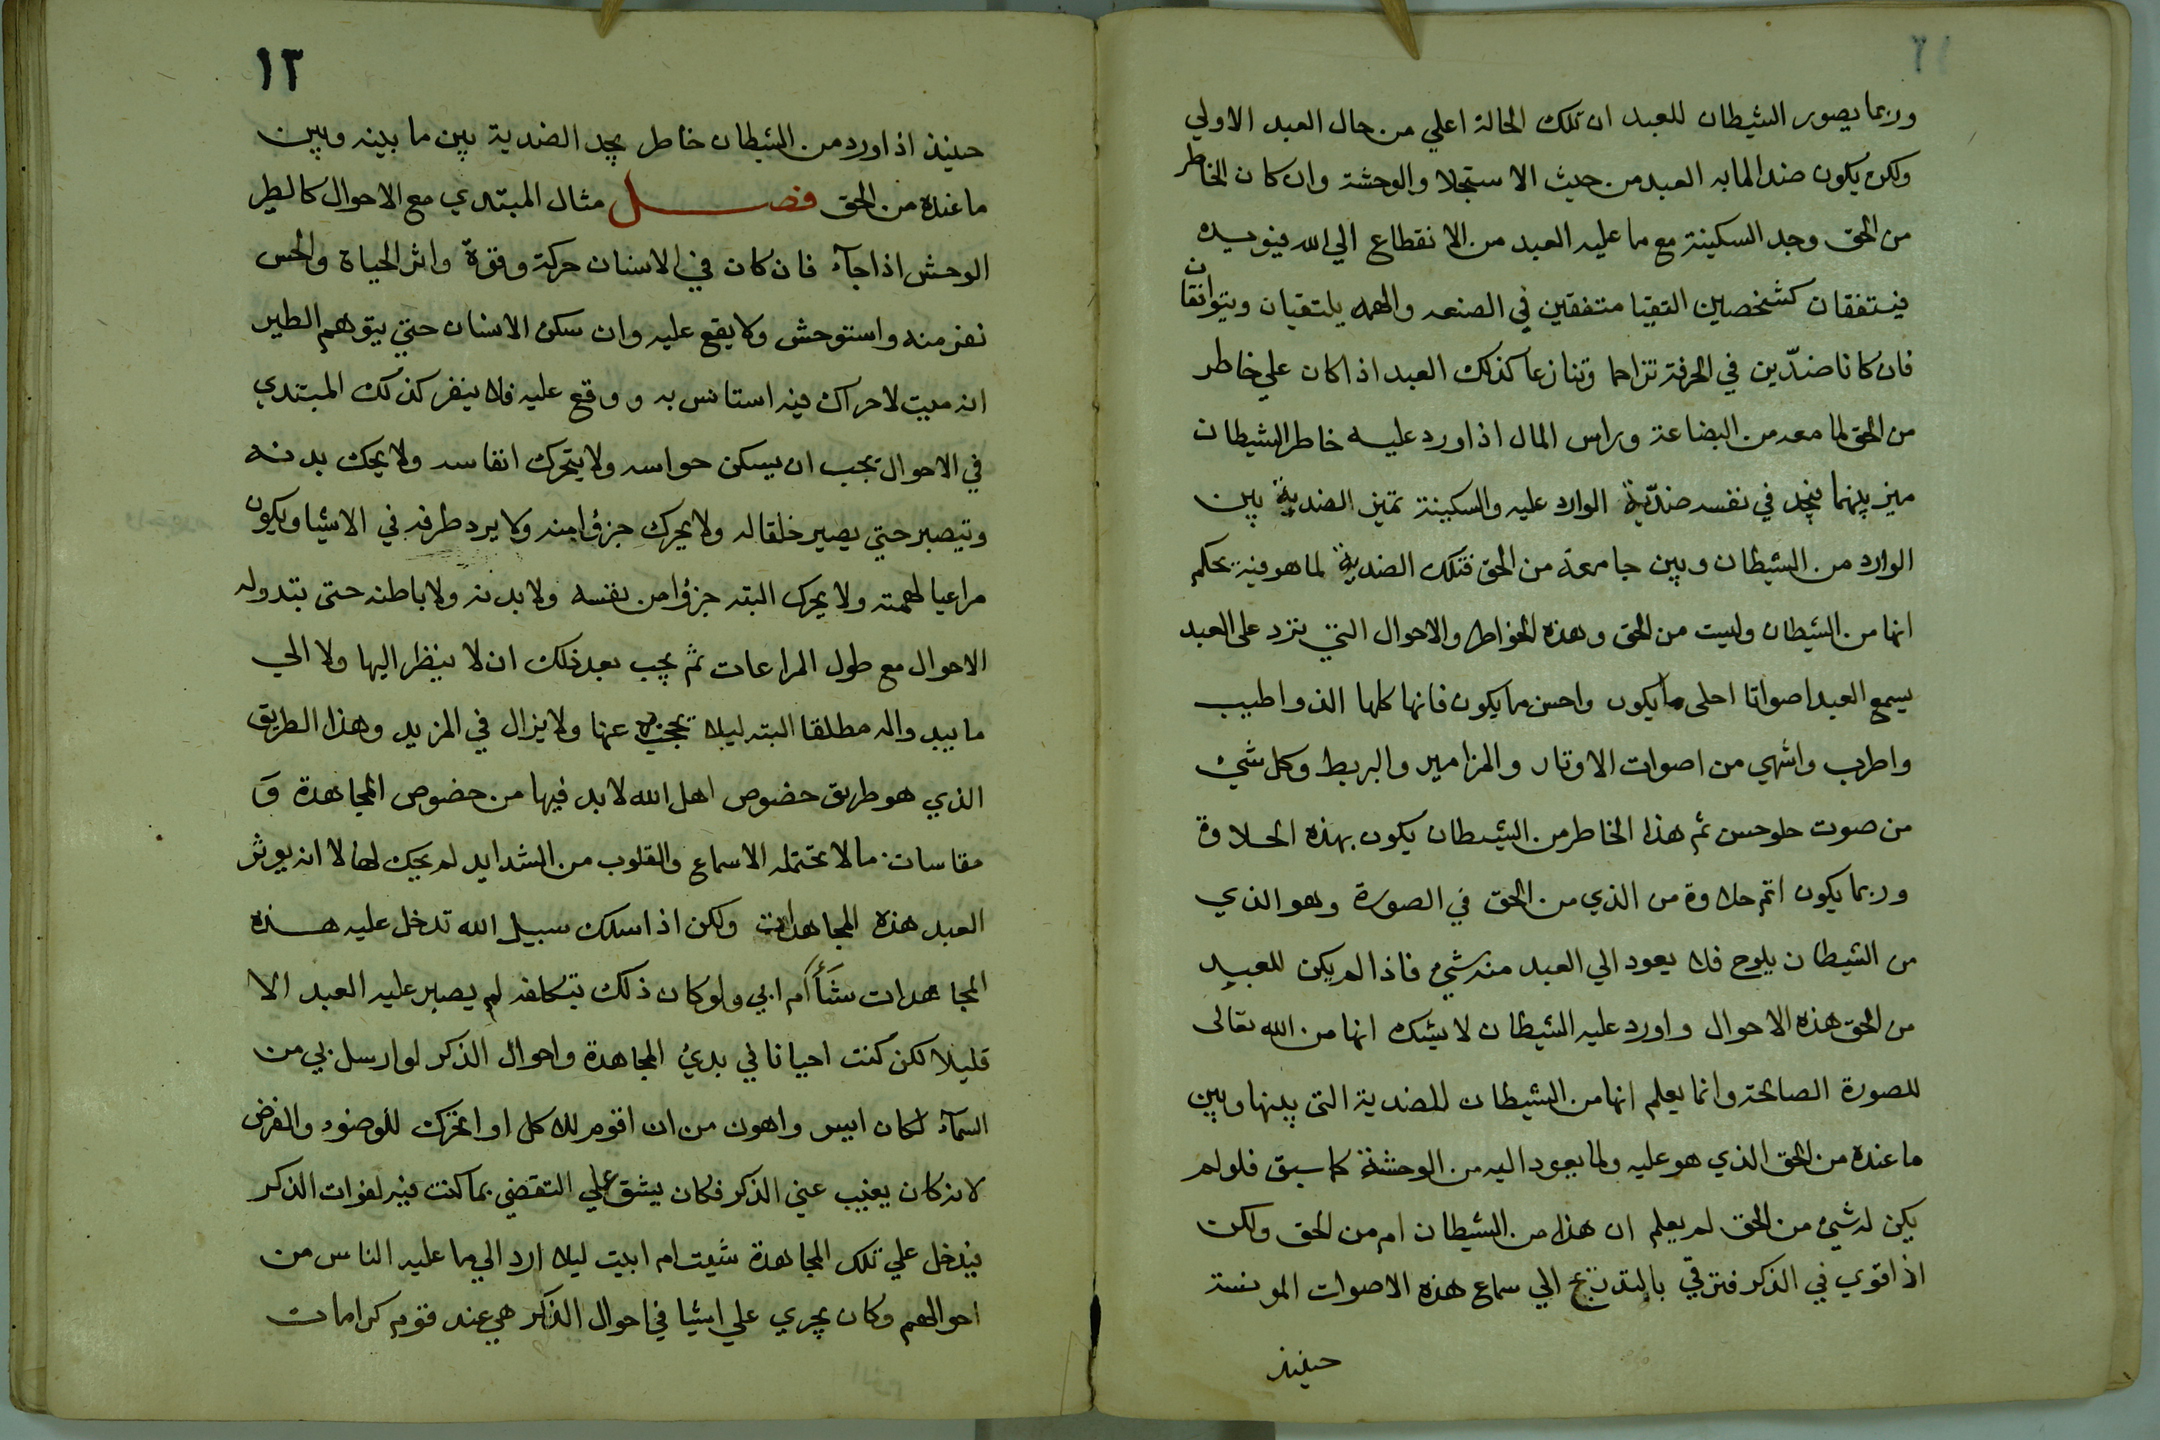 وربما يصور الشيطان للعبد ان تلك الحالة اعلي من حال العبد الاولي
ولكن يكون ضدا لما به العبد من حيث الاستجلا والوحشة وان كان الخاطر
من الحق وجد السكينة مع ما عليه العبد من الانقطاع الي الله
فيتفقان كشخصين التقيا متفقين في الصنعه والهمه يلتقيان ويتوافقان
فان كانا ضدّين في الحرفة تزاحما وتنازعا كذلك العبد اذا كان علي خاطر
من الحق لما معه من البضاعة وراس المال اذا ورد عليه خاطر الشيطان
ميز بينهما فيجد في نفسه ضدّية الوارد عليه والسكينة تميز الضدية بين
الوارد من الشيطان وبين جا معه من الحق فتلك الضدية لما هو فيه يحكم
انها من الشيطان وليست من الحق وهذه الخواطر والاحوال التي ترد على العبد
يسمع العبد اصواتا احلى ما يكون واحسن ما يكون فانها كلها الذ واطيب
واطرب واشهي من اصوات الاوتار والمزامير والبربط وكل شيء
من صوت حلو حسن ثم هذا الخاطر من الشيطان يكون بهذه الحلاوة
وربما يكون اتم حلاوة من الذي من الحق في الصورة وهو الذي
من الشيطان يلوح فلا يعود الي العبد منه شيء فاذا لم يكن للعبد
من الحق هذه الاحوال واورد عليه الشيطان لا يشك انها من الله تعالى
للصورة الصالحة وانما يعلم انها من الشيطان للضدية التي بينها وبين
ما عنده من الحق الذي هو عليه ولما يعود اليه من الوحشة كما سبق فلو لم
يكن له شيء من الحق لم يعلم ان هذا من الشيطان ام من الحق ولكن
اذا قوي في الذكر فترقي بالتدريج الي سماع هذه الاصوات المونسة
حينيذ
١٢
حينيذ اذا ورد من الشيطان خاطر يجد الضدية بين ما بينه وبين
ما عنده من الحق فصل مثال المبتدي مع الاحوال كالطير
الوحش اذا جآء فان كان في الانسان حركة وقوة واثر الحياة والحس
نفر منه واستوحش ولا يقع عليه وان سكن الانسان حتي يتوهم الطير
انه ميت لا حراك فيه استانس به ووقع عليه فلا ينفر كذلك المبتدي
في الاحوال يجب ان يسكن حواسه ولا يتحرك انفاسه ولا يحك بدنه
وتيصبر حتي يصير خلقا له ولا يحرك جزؤا منه ولا يرد طرفه في الاشيا ويكون
مراعيا لهمته ولا يحرك البته جزؤا من نفسه ولا بدنه ولا باطنه حتى تبدو له
الاحوال مع طول المراعات ثم يجب بعد ذلك ان لا ينظر اليها ولا الي
ما يبدو اله مطلقا البته ليلا تحجبه عنها ولا يزال في المزيد وهذا الطريق
الذي هو طريق خصوص اهل الله لا بد فيها من خصوص المجاهدة وَ
مقاسات ما لا تحتمله الاسماع والقلوب من الشدايد لم يحك لها لا انه يوثر
العبد هذه المجاهدات ولكن اذا سلك سبيل الله تدخل عليه هذه
المجاهدات شَأَ أم ابي ولو كان ذلك بتكلفه لم يصبر عليه العبد الا
قليلا لكن كنت احيانا في بدئ المجاهدة واحوال الذكر لو ارسل بي من
السمآء لكان ايسر واهون من ان اقوم للاكل او اتحرك للوضوء والفرض
لانه كان يغيب عني الذكر فكان يشق علي التقضي بما كنت فيه لفوات الذكر
فيدخل علي تلك المجاهدة شيت ام ابيت ليلا ارد الي ما عليه الناس من
احوالهم وكان يجري علي اشيا في احوال الذكر هي عند قوم كرامات